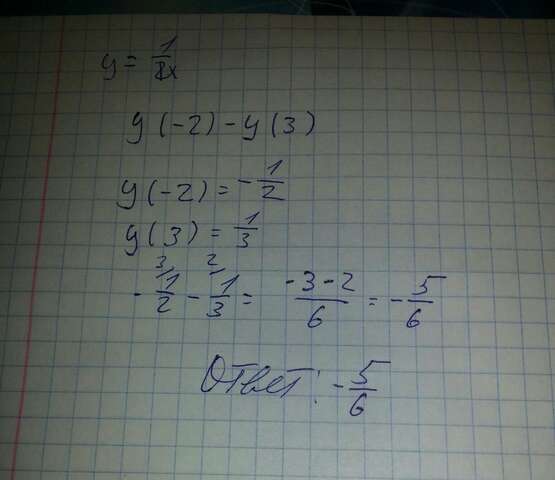 y = 1/x
y(-2) - y(3)
y(-2) = -1/2
y(3) = 1/3
-1/2 (3) - 1/3 (2) = (-3-2)/6 = -5/6
Ответ: -5/6